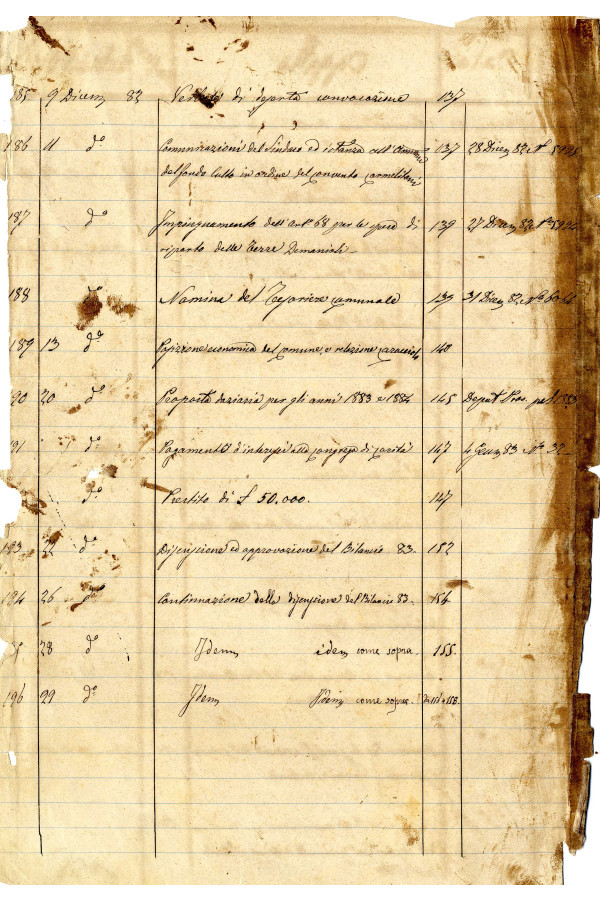 185 9 Dicem 82 Verbale di deserta convocazione 137
186 11 d.º Comunicazioni del Sindaco ed istanza 137 28 Dicem 82 Nº
del fondo Culto in ordine del convento Carmelitani
187 dº Impinguamento dell'Art.º 68 per le spese di 139 27 Dicem 82 Nº
riparto delle Terre Demaniali
188 dº Nomina del Tesoriere Comunale 139 31 Dicem 82 Nº
189 13 dº Posizione economica del Comune, e relazione 140
190 20 dº Proposta daziaria per gli anni 1883 e 1884 145 Deput. Prov. 1883
191 dº Pagamento d'interessi alla Congrega di Carità 147 4 Genn 83 Nº 32
dº Prestito di £ 50.000. 147
193 22 dº Discussione ed approvazione del Bilancio 83. 152
194 26 dº Continuazione della discussione del Bilancio 83. 154
28 dº Idem idem come sopra. 155
196 29 dº Idem Idem come sopra. 158